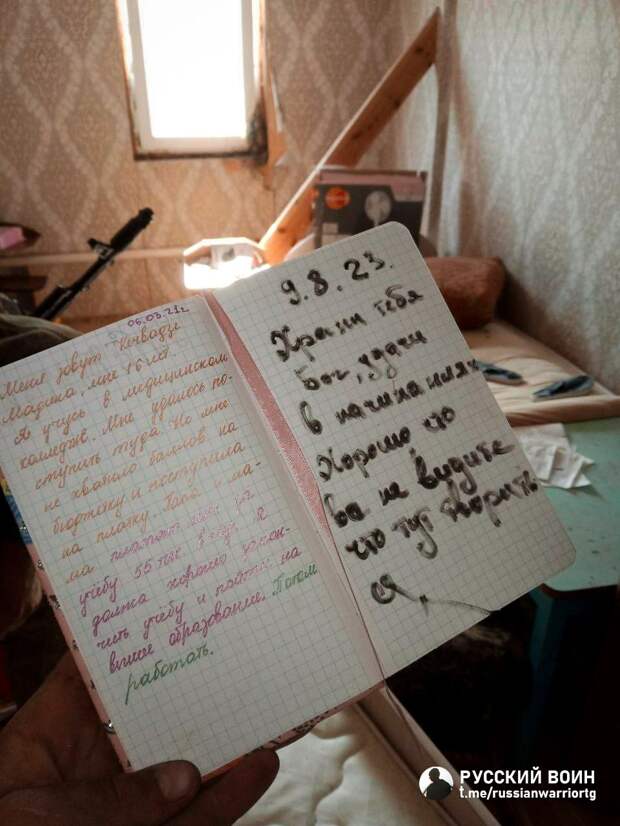 06.03.21г
Меня зовут Кочвадзе
Марина, мне 16 лет.
Я учусь в медицинском
колледже. Мне удалось по-
ступить туда. Но мне
не хватило баллов на
бюджетку и поступила
на платку. Папа и ма-
ма платят за
учёбу 55 тыс в год. Я
должна хорошо закон-
чить учёбу и пойти на
вышее образование. Потом
работать.
9.8.23.
Храни тебя
Бог, удачи
в начинаниях
Хорошо, что
вы не видите
что тут творить
ся,
РУССКИЙ ВОИН
t.me/russianwarriortg